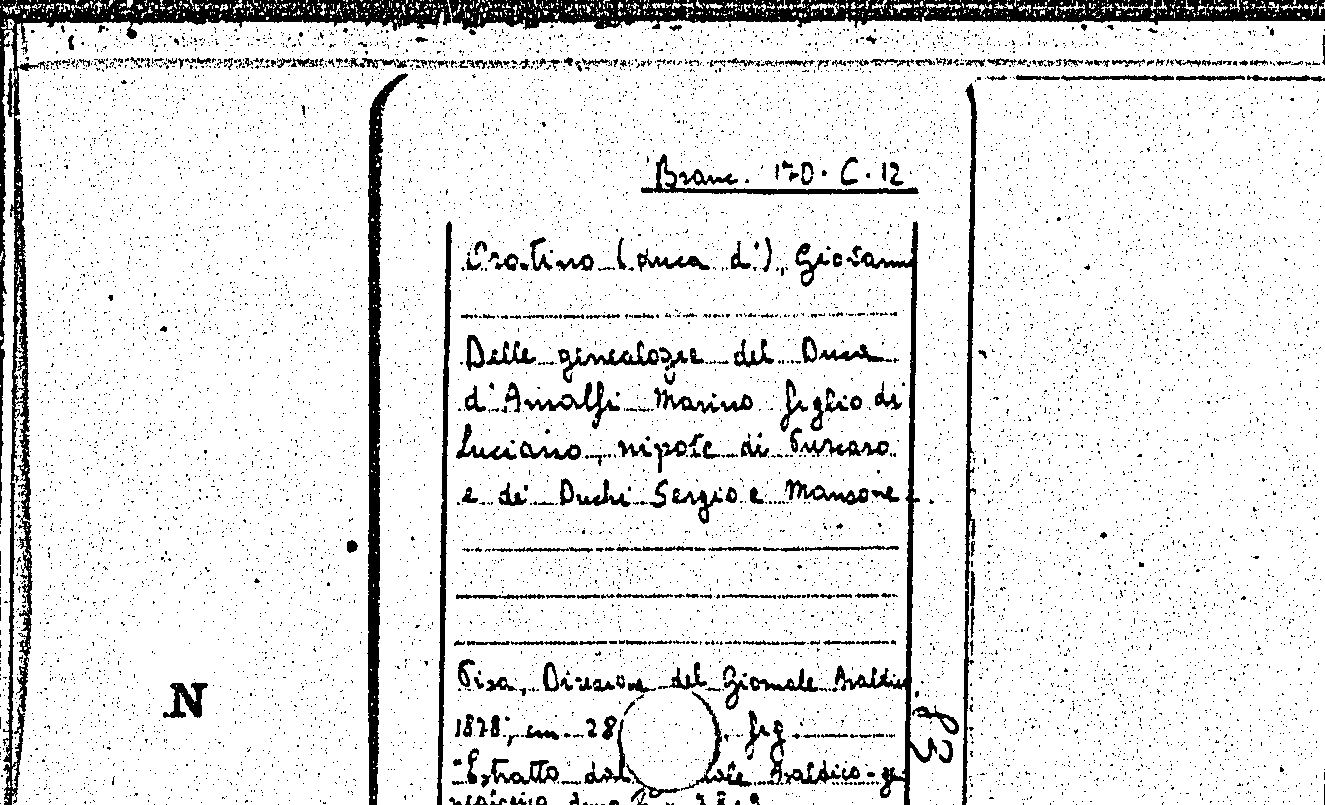 Branc. 170. C. 12
Cratino (duca di), Giovanni
Delle genealogie del Duca
d'Amalfi Marino figlio di
Luciano, nipote di Pursaro
e dei Duchi Sergio e Mansone.
N
Pisa, Direzione del Giornale Araldico
1878; cm. 28 fig
83
"Estratto dal Araldico-ge